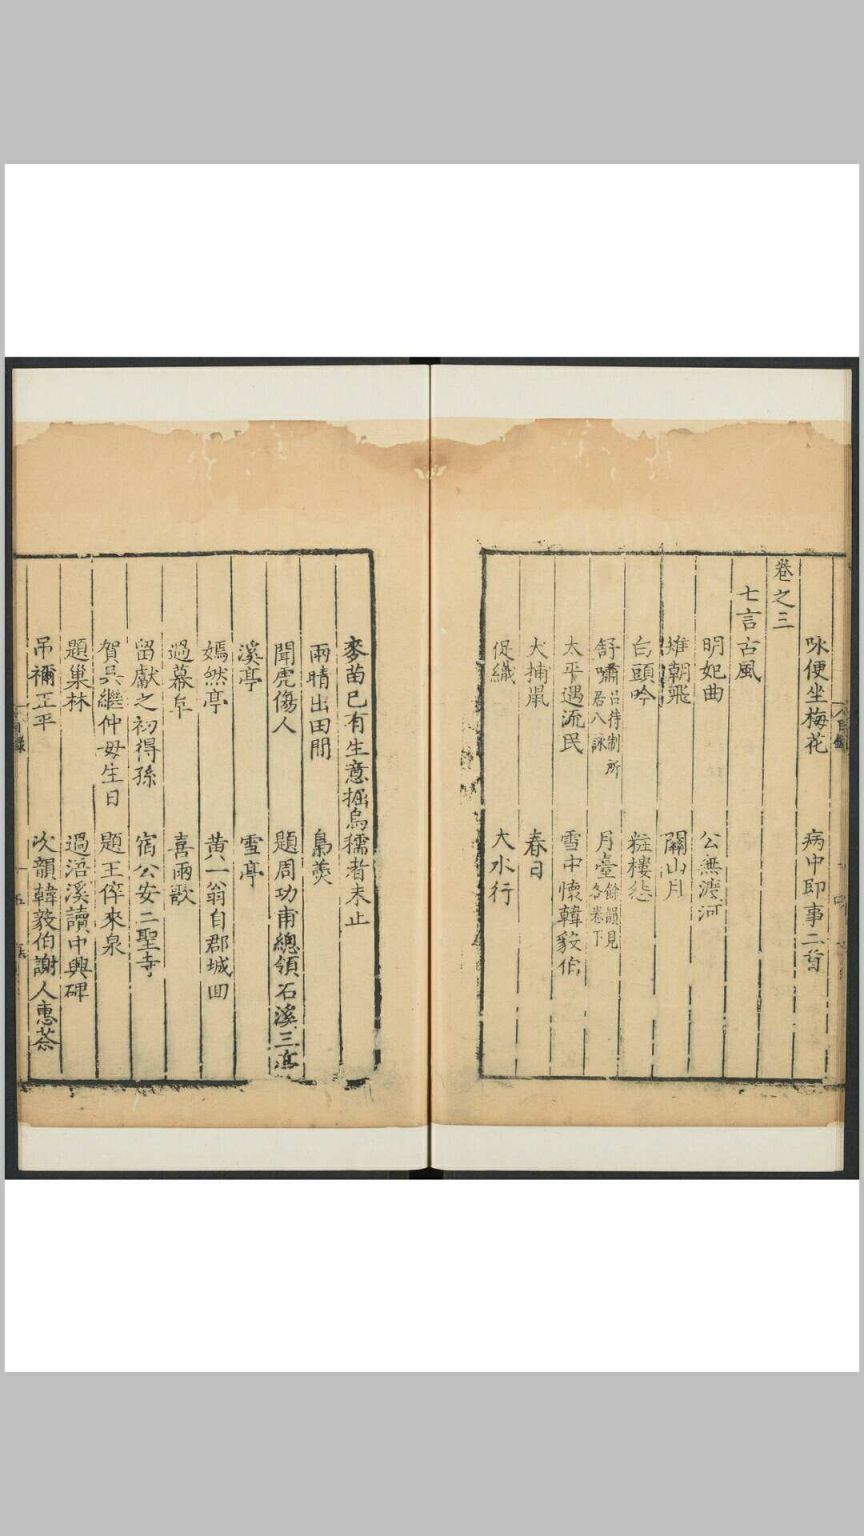 咏便坐梅花　病中即事二首
卷之三
七言古風
明妃曲　公無渡河
雉朝飛　關山月
白頭吟　粧樓怨
舒嘯呂待制所居八詠　月臺餘韻見各卷下
太平遇流民　雪中懷韓毅伯
犬捕鼠　春日
促織　大水行
麥苗已有生意掘烏穤者未止
雨晴出田間　梟羮
聞虎傷人　題周功甫總領石溪三亭
溪亭　雪亭
嫣然亭　黄一翁自郡城回
過幕阜　喜雨歌
留獻之初得孫　宿公安二聖寺
賀吳繼仲母生日　題王倅來泉
題巢林　過浯溪讀中興碑
吊禰正平　次韻韓毅伯謝人惠茶